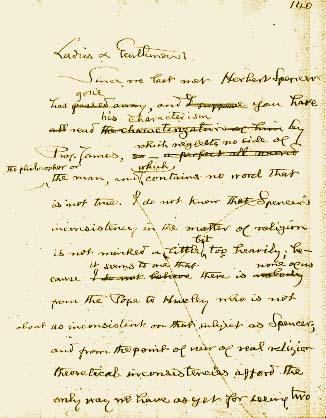 140
Ladies & Gentlemen,
Since we last met Herbert Spencer
gone
has passed away, and I suppose you have
his characterism
all read the characterization of him by
which neglects no side of
Prof. James,
the philosopher or
which
the man, and contains no word that
is not true. I do not know that Spencer's
inconsistency in the matter of religion
bit
is not marked a little too heavily; be-
it seems to me that none of us
cause I do not believe there is nobody
from the Pope to Huxley who is not
about as inconsistent on that subject as Spencer,
and from the point of view of real religion
theoretical inconsistencies afford the
only way we have as yet for seeing two